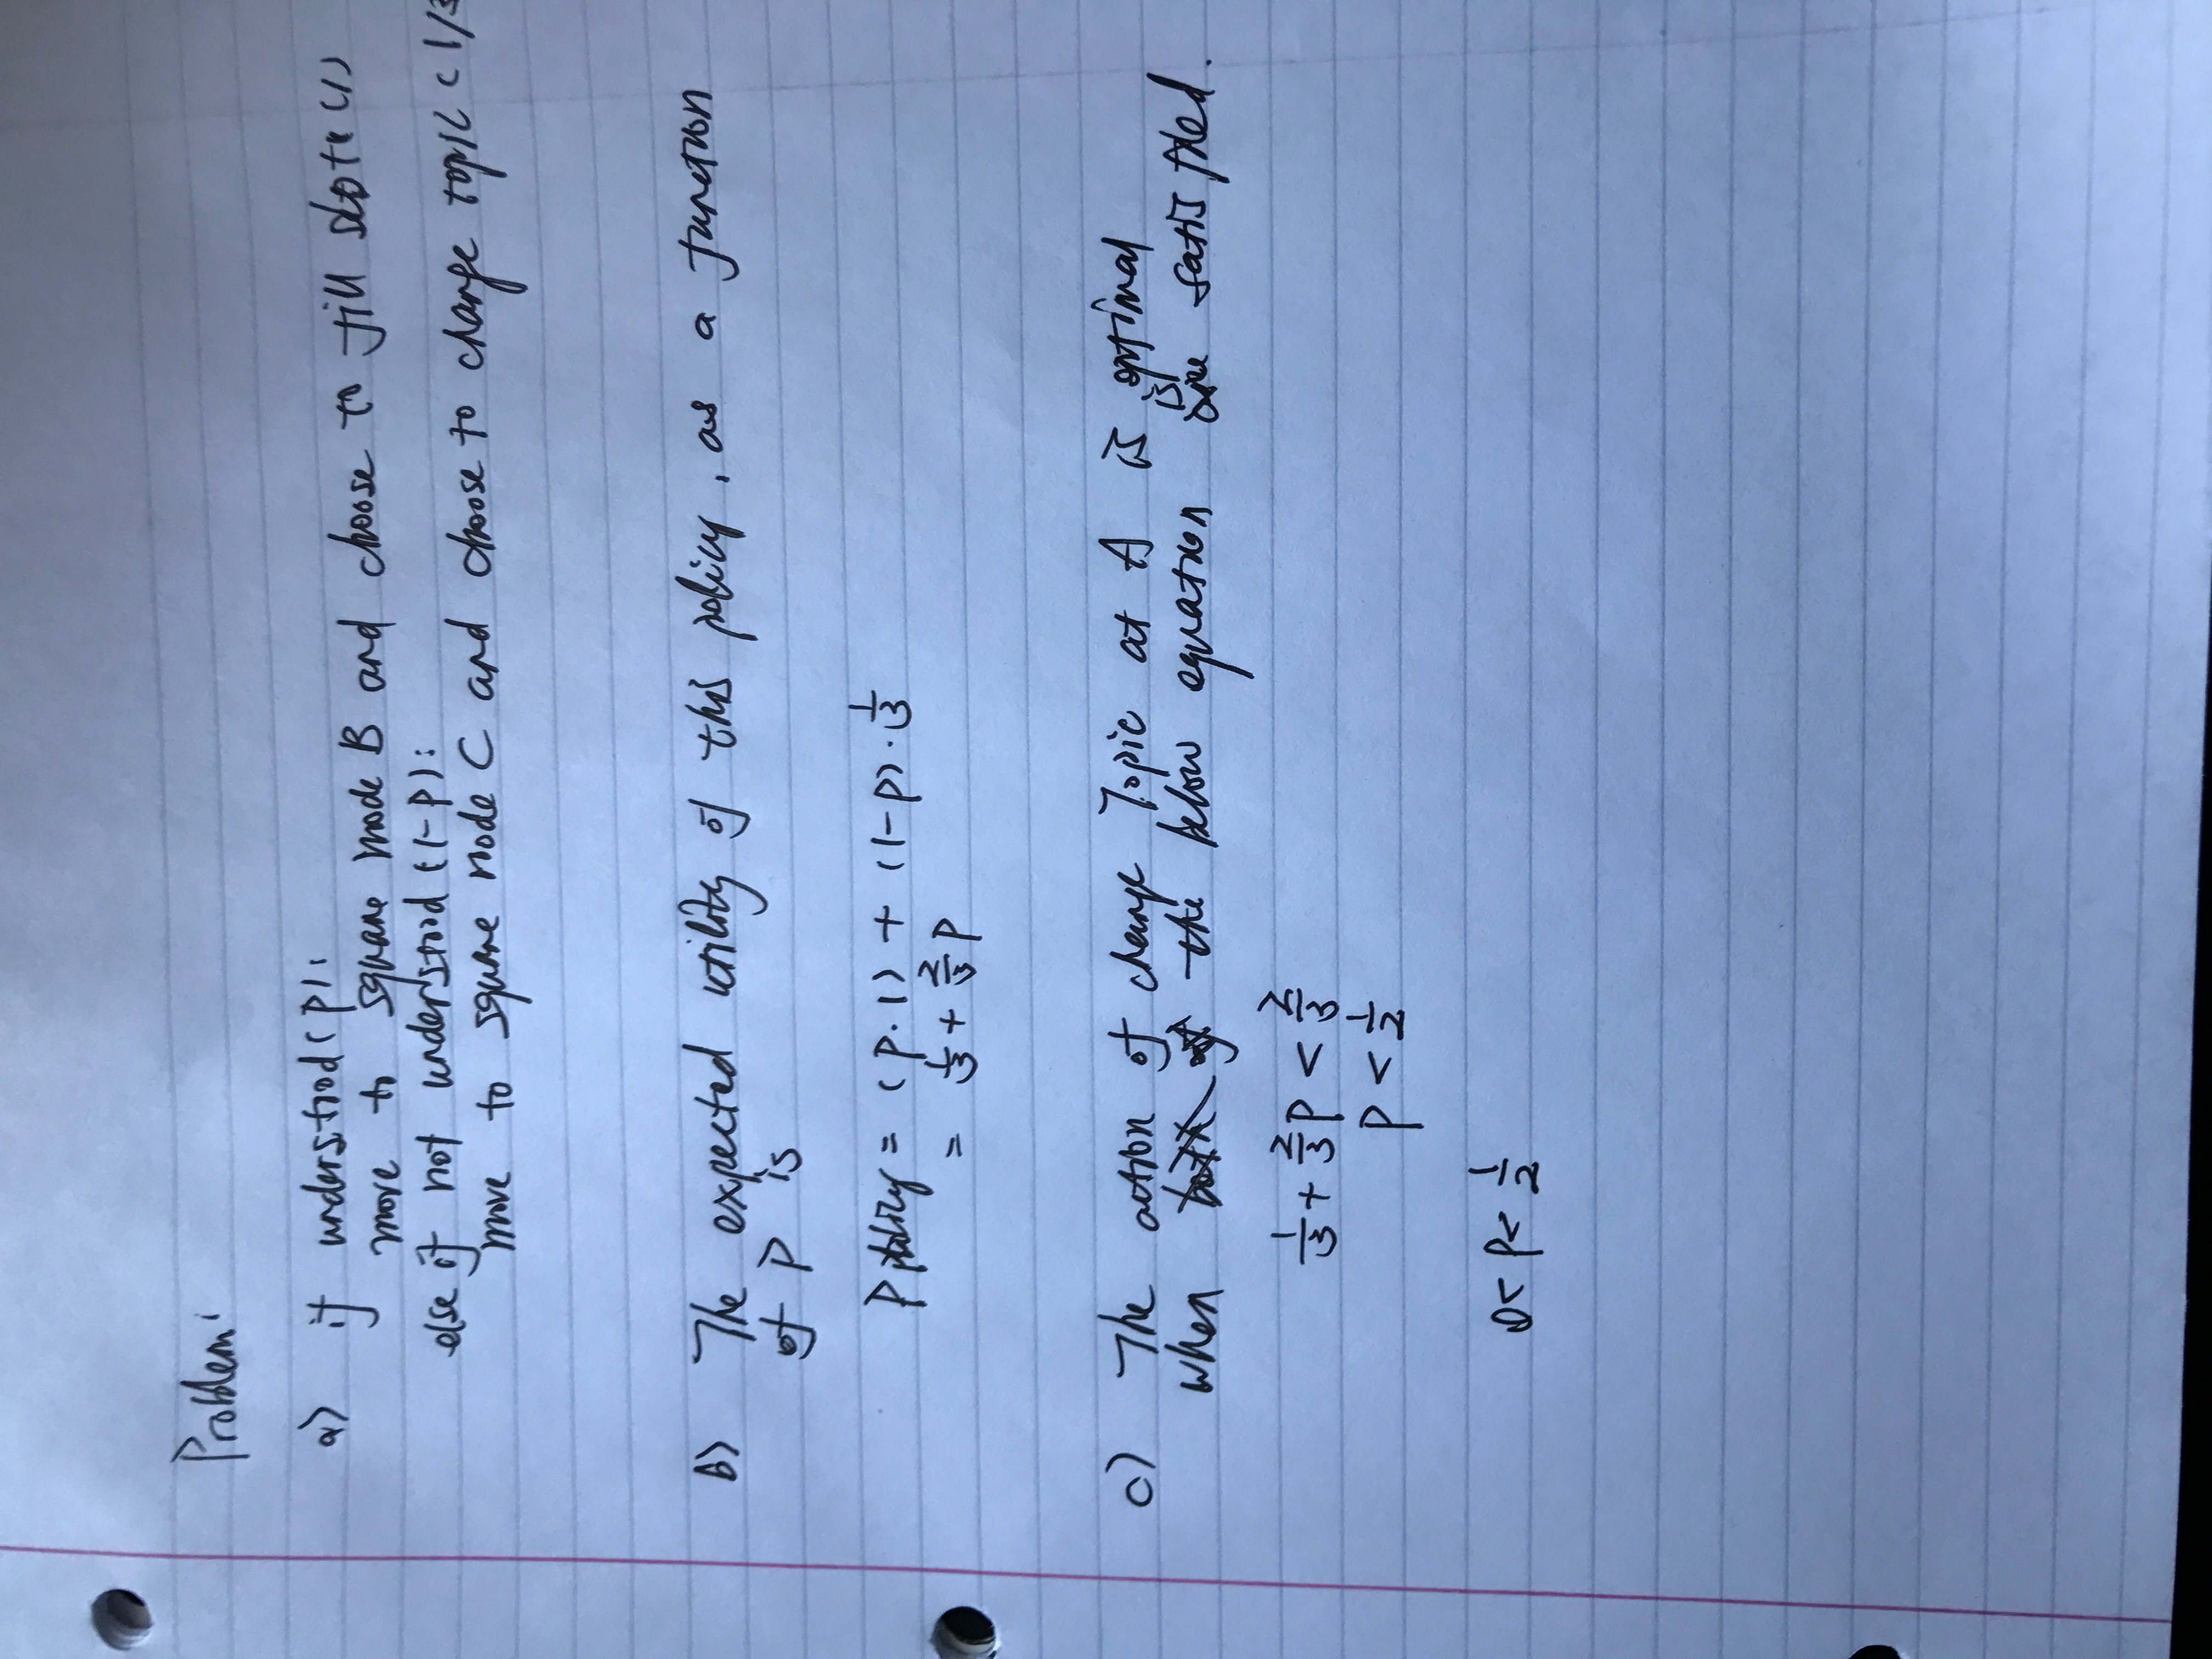 Problem:
a) if understood (p):
move to square node B and choose to fill slots (1)
else if not understood (1-p):
move to square node C and choose to change topic (1/3
b) The expected utility of this policy, as a function
of P is
P policy = (p·1) + (1-p)·1/3
= 1/3 + 2/3 P
c) The action of change Topic at A is optimal
when the below equation is satisfied.
1/3 + 2/3 P < 2/3
P < 1/2
0 < P < 1/2